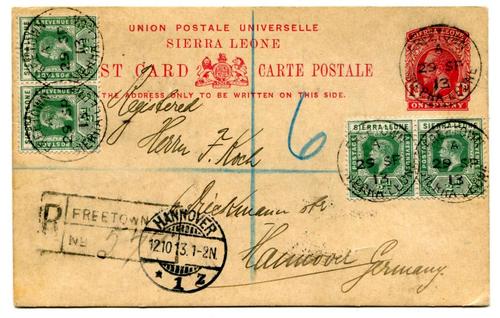 UNION POSTALE UNIVERSELLE
SIERRA LEONE
POST CARD CARTE POSTALE
THE ADDRESS ONLY TO BE WRITTEN ON THIS SIDE.
ONE PENNY
29 SP
13
Registered
6
Herrn F. Koch
SIERRA LEONE
29 SP
13
R
FREETOWN
No
HANNOVER
12.10.13.1-2N.
* 1 Z
Hannover
Germany.